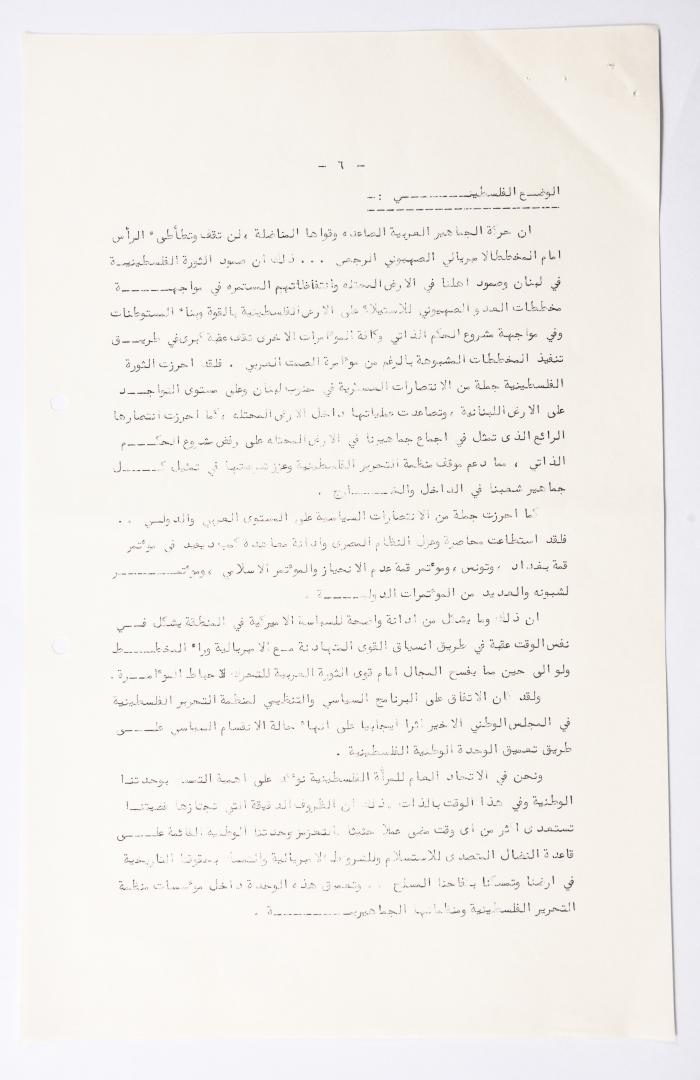 - ٦ -
الوضع الفلسطينـــــــــــي :-
ان حركة الجماهير العربية الصاعده وقواها المناضلة ، لن تقف وتطأطىء الرأس
امام المخطط الامبريالي الصهيوني الرجعي ... ذلك أن صمود الثورة الفلسطينيـــة
في لبنان وصمود اهلنا في الارض المحتله وانتفاضاتهم المستمره في مواجهــــــة
مخططات العدو الصهيوني للاستيلاء على الارض الفلسطينية بالقوة وبناء المستوطنات
وفي مواجهة مشروع الحكم الذاتي وكافة المؤامرات الاخرى تقف عقبة كبرى في طريـــق
تنفيذ المخططات المشبوهة بالرغم من مؤامرة الصمت العربي . فلقد احرزت الثورة
الفلسطينية جملة من الانتصارات العسكرية في جنوب لبنان وعلى مستوى التواجـــد
على الارض اللبنانية ، وتصاعدت عملياتها داخل الارض المحتله ، كما احرزت انتصارها
الرائع الذى تمثل في اجماع جماهيرنا في الارض المحتله على رفض مشروع الحكــــم
الذاتي ، مما دعم موقف منظمة التحرير الفلسطينية وعزز شرعيتها في تمثيل كــــــل
جماهير شعبنا في الداخل والخــــــارج .
كما احرزت جملة من الانتصارات السياسية على المستوى العربي والدولـــي ..
فلقد استطاعت محاصرة وعزل النظام المصرى وادانة معاهدة كمب ديفيد في مؤتمر
قمة بغداد ، وتونس ، ومؤتمر قمة عدم الانحياز والمؤتمر الاسلامي ، ومؤتمــــــــر
لشبونه والعديد من المؤتمرات الدوليــــــة .
ان ذلك وما يشكل من ادانة واضحة للسياسة الاميركية في المنطقة يشكل فــــي
نفس الوقت عقبة في طريق انسياق القوى المتهادنة مـع الامبريالية وراء المخطـــــط
ولو الى حين مما يفسح المجال امام قوى الثورة العربية للتحرك لاحباط المؤامــــرة .
ولقد كان الاتفاق على البرنامج السياسي والتنظيمي لمنظمة التحرير الفلسطينية
في المجلس الوطني الاخير اثرا ايجابيا على انهاء حالة الانقسام السياسي علــــى
طريق تعميق الوحدة الوطنية الفلسطينية .
ونحن في الاتحاد العام للمرأة الفلسطينية نؤكد على اهمية التمسك بوحدتنـــا
الوطنية وفي هذا الوقت بالذات ، ذلك ان الظروف الدقيقة التي تجتازها قضيتنــا
تستدعى اكثر من أى وقت مضى عملا حثيثا لتعزيز وحدتنا الوطنيه القائمة علــــى
قاعدة النضال المتصدى للاستسلام وللشروط الامبريالية والتمسك بحقوقنا التاريخية
في ارضنا وتمسكنا بكفاحنا المسلح .. وتعميق هذه الوحدة داخل مؤسسات منظمة
التحرير الفلسطينية ومنظماتها الجماهيريـــــــــــة .